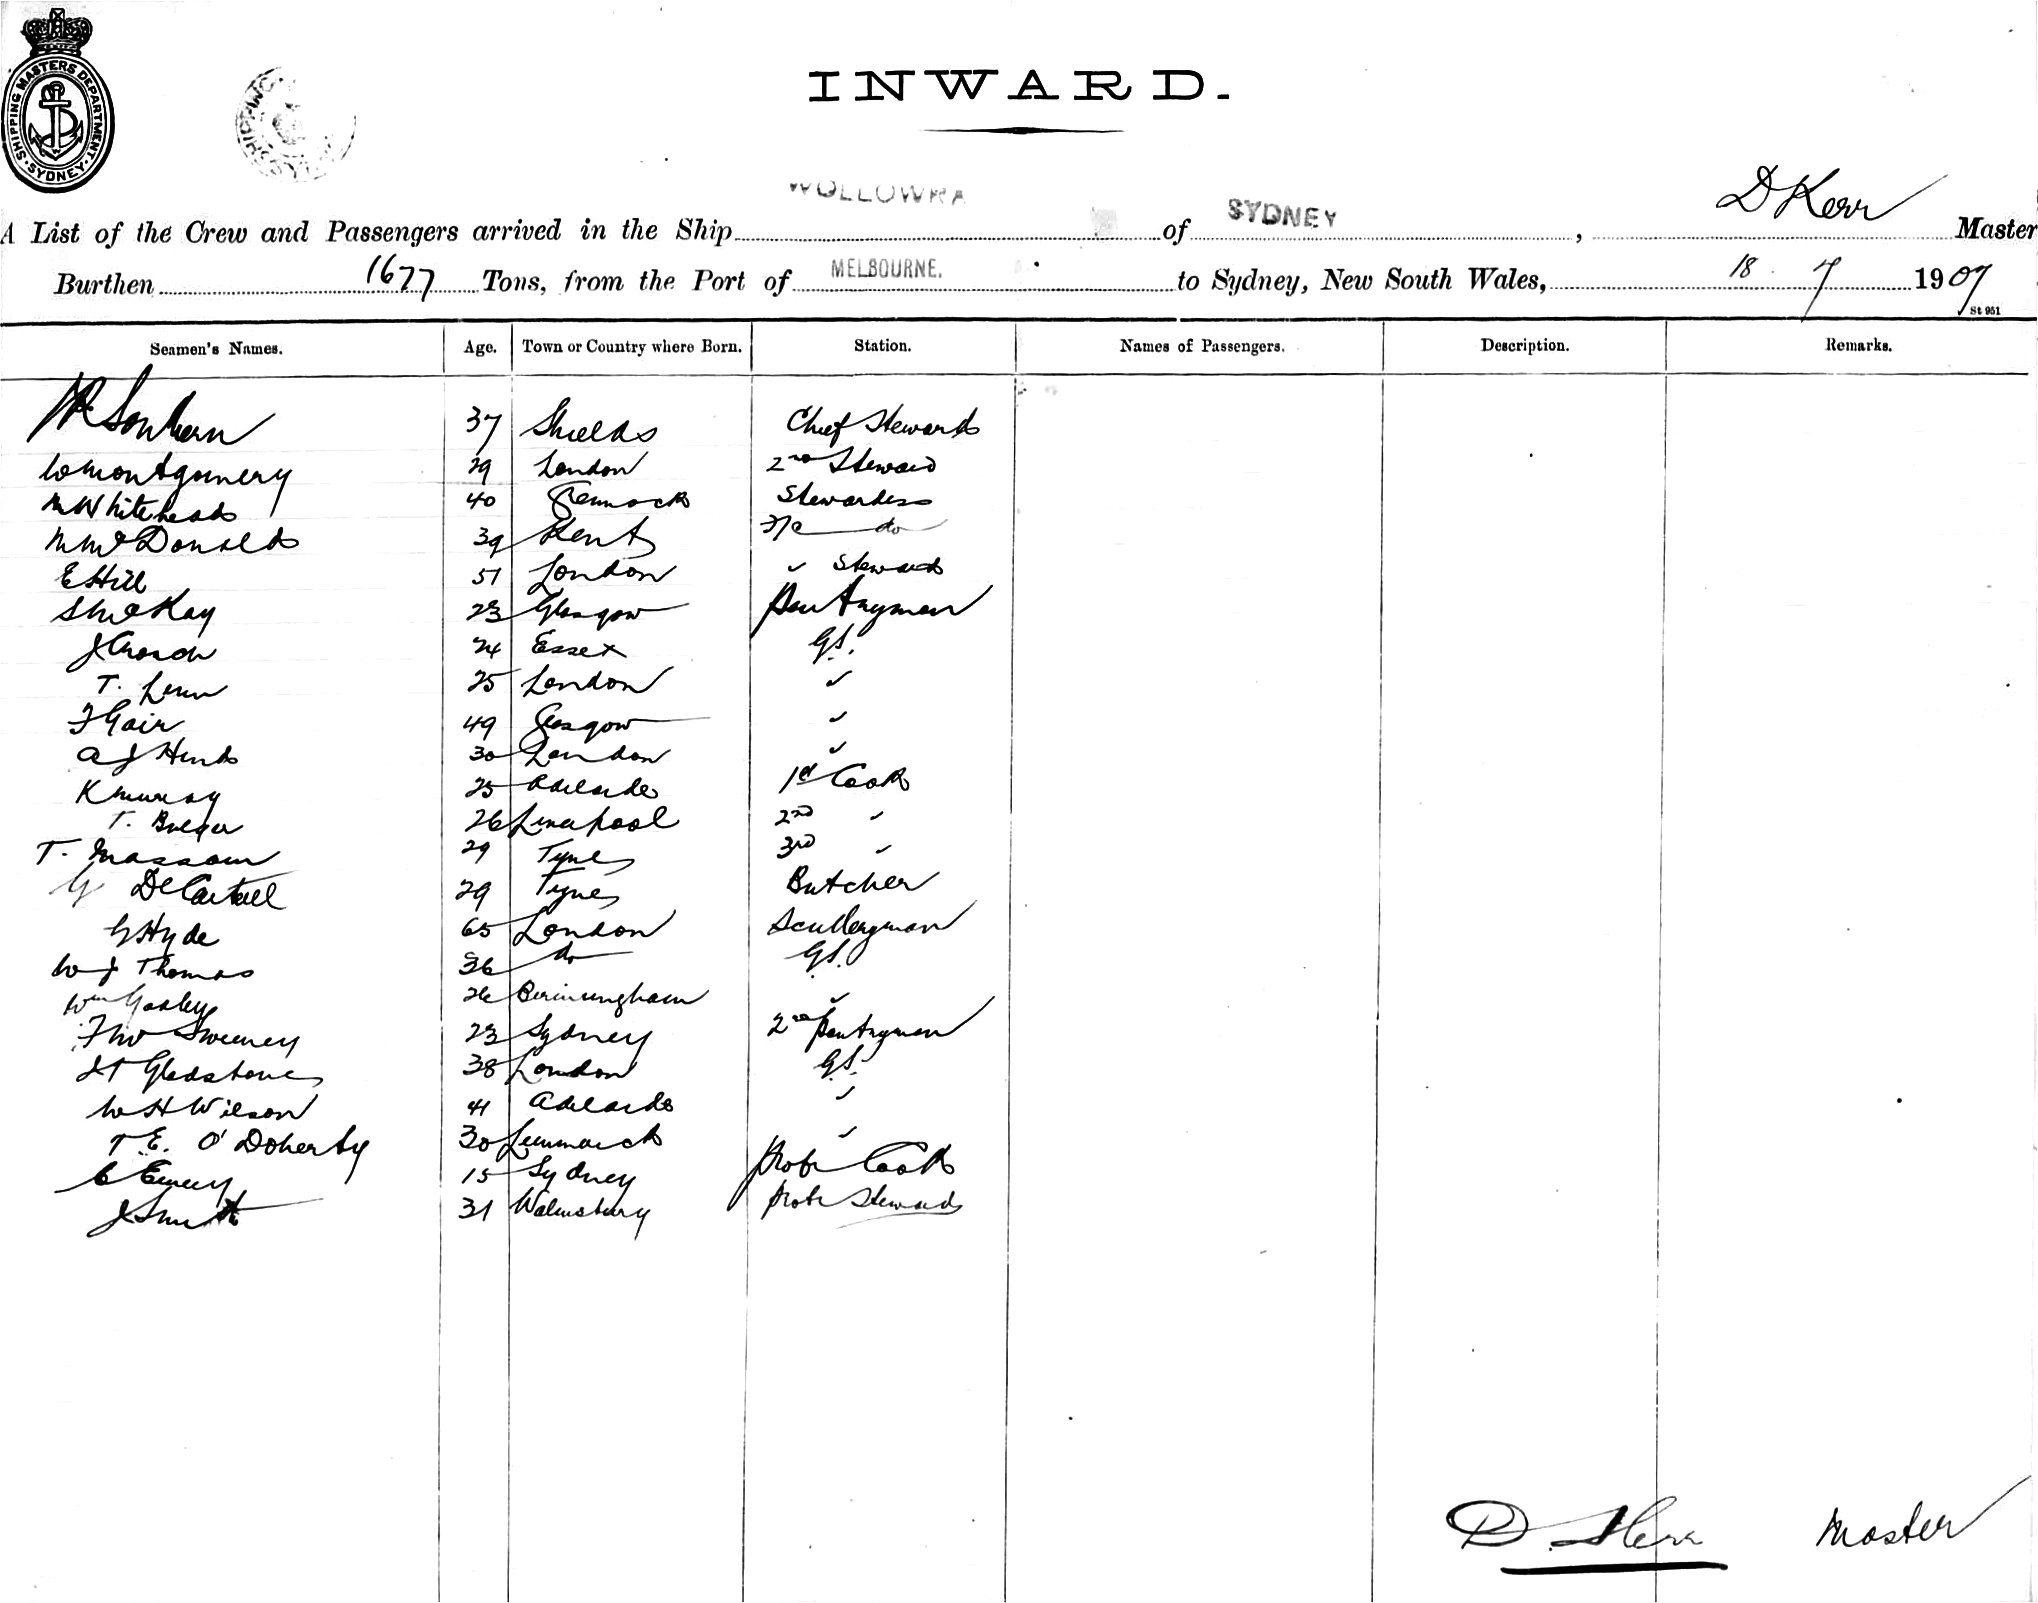 SHIPPING MASTERS DEPARTMENT. SYDNEY.
INWARD.
WOLLOWRA
SYDNEY
D Kerr
A List of the Crew and Passengers arrived in the Ship of , Master
Burthen 1677 Tons, from the Port of MELBOURNE. to Sydney, New South Wales, 18 7 1907
St 951
Seamen's Names. Age. Town or Country where Born. Station. Names of Passengers. Description. Remarks.
37 Shields Chief Steward
W Montgomery 29 London 2nd Steward
M Whitehead 40 Stewardess
M McDonald 39 Kent do
E Hill 51 London " Steward
S McKay 23 Glasgow Pantryman
24 Essex G.S.
T. 25 London "
F Gair 49 Glasgow "
A J Hind 30 London "
K Murray 25 Adelaide 1st Cook
T. 26 Liverpool 2nd "
T. 29 Tyne 3rd "
G 29 Tyne Butcher
G Hyde 65 London Sculleryman
W J Thomas 36 do G.S.
Wm 26 Birmingham "
Sweeney 23 Sydney 2nd Pantryman
J T Gladstone 38 London G.S.
W H Wilson 41 Adelaide "
T. E. O'Doherty 30 "
C Emery 15 Sydney Probr Cook
J Smith 31 Walmsbury Probr Steward
D. Kerr Master